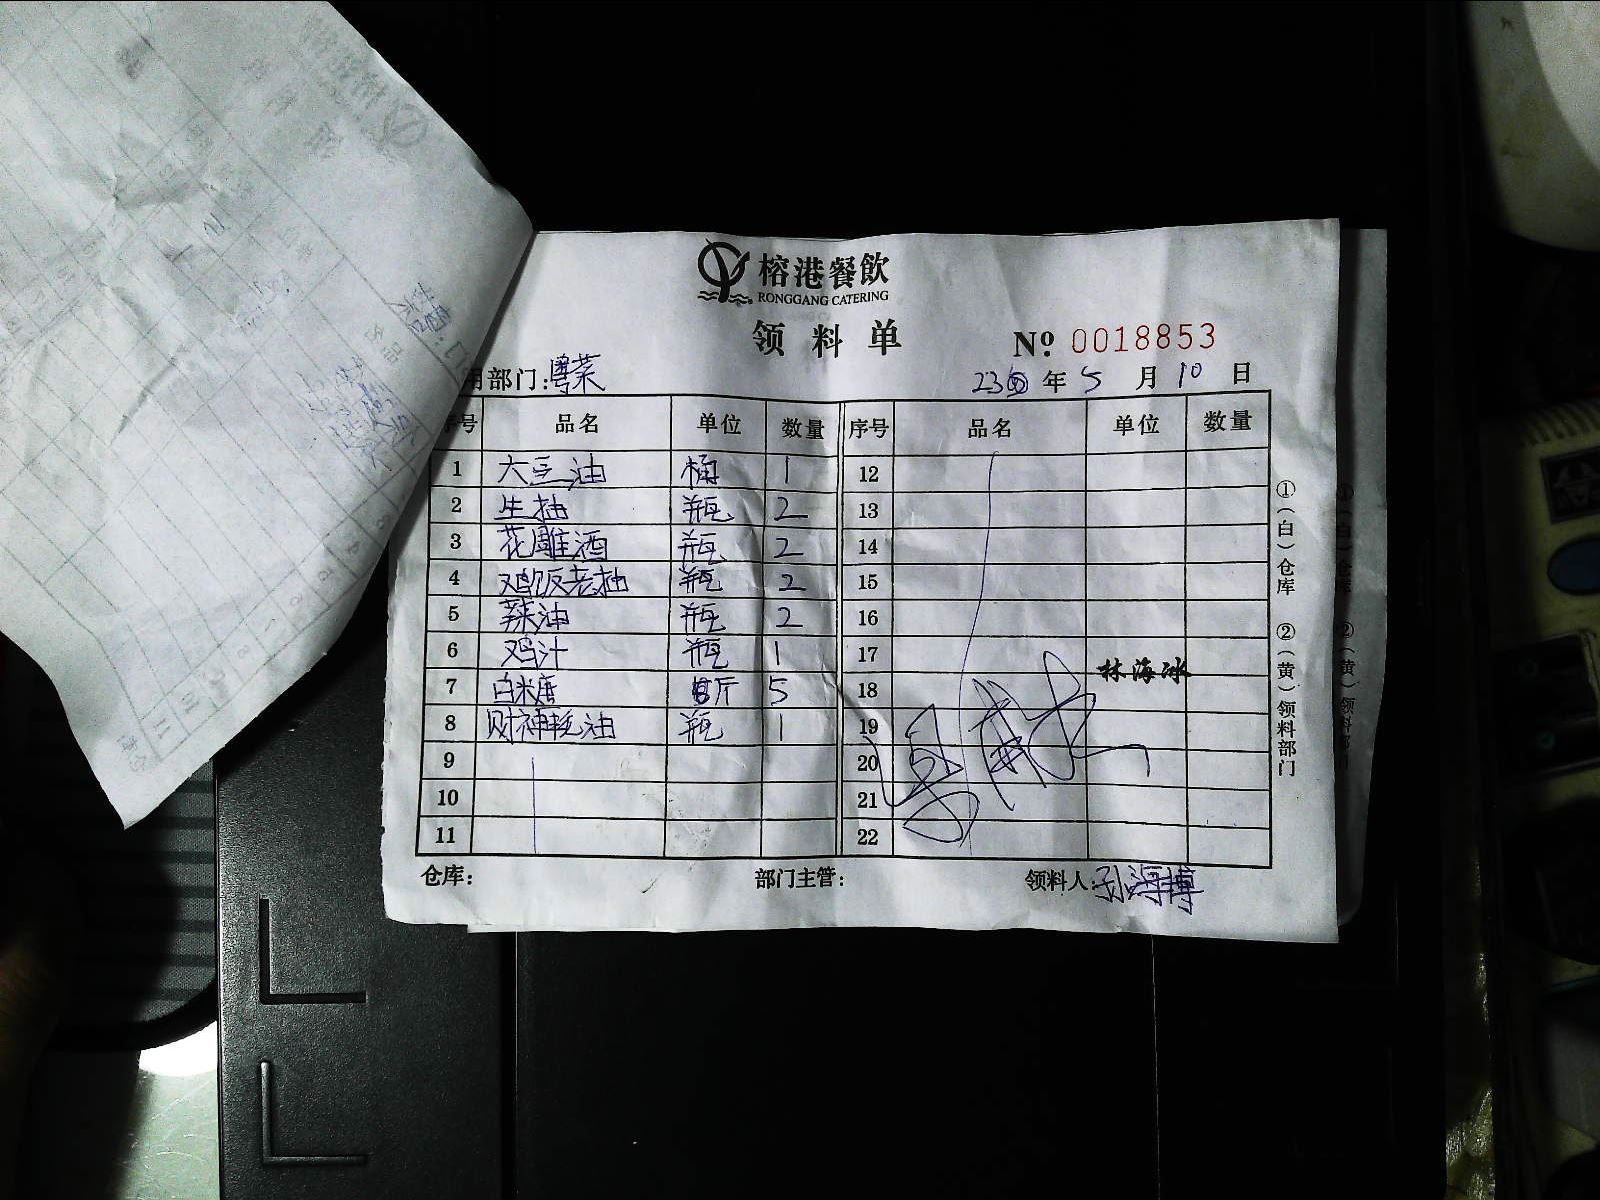 榕港餐飲
RONGGANG CATERING
领料单
№ 0018853
用部门:粤菜
23 年 5 月 10 日
序号 品名 单位 数量 序号 品名 单位 数量
1 大豆油 桶 1 12
2 生抽 瓶 2 13
3 花雕酒 瓶 2 14
4 鸡饭老抽 瓶 2 15
5 辣油 瓶 2 16
6 鸡汁 瓶 1 17
林海冰
7 白米唐 斤 5 18
8 财神蚝油 瓶 1 19
9 20
10 21
11 22
①(白)仓库 ②(黄)领料部门
仓库: 部门主管: 领料人:孙海博